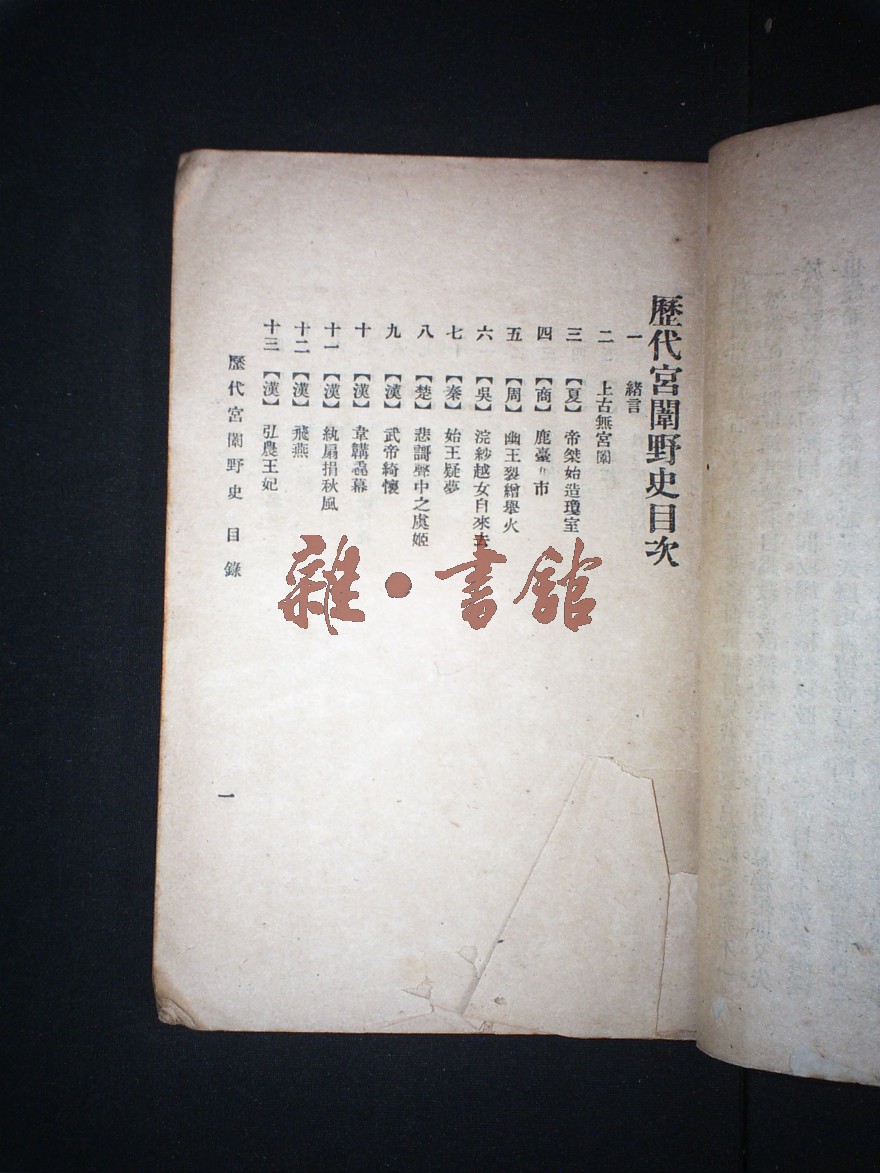 歷代宮闈野史目次
一 緒言
二 上古無宮闈
三 【夏】 帝桀始造瓊室
四 【商】 鹿臺 市
五 【周】 幽王裂繒舉火
六 【吳】 浣紗越女自來去
七 【秦】 始王疑夢
八 【楚】 悲謌聲中之虞姬
九 【漢】 武帝綺懷
十 【漢】 韋韝毳幕
十一 【漢】 紈扇捐秋風
十二 【漢】 飛燕
十三 【漢】 弘農王妃
歷代宮闈野史 目錄
一
雜·書館